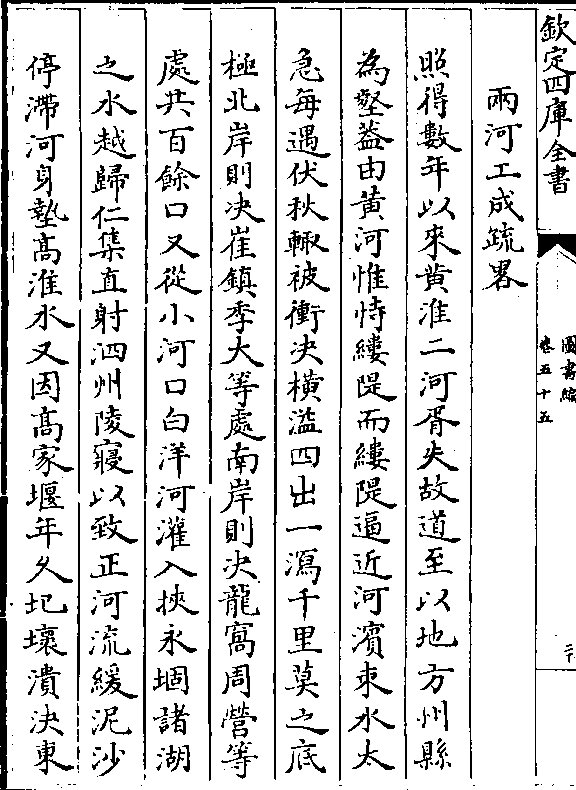 欽定四庫全書
圖書編
卷五十五
二十
兩河工成疏畧
照得數年以來黄淮二河胥失故道至以地方州縣
為壑葢由黄河惟恃縷隄而縷隄逼近河濱束水太
急每遇伏秋輙被衝決橫溢四出一瀉千里莫之底
極北岸則决崔鎮季大等處南岸則决龍窩周營等
處共百餘口又從小河口白洋河灌入挾永堌諸湖
之水越歸仁集直射泗州陵寢以致正河流緩泥沙
停滯河身墊高淮水又因高家堰年久圮壞潰決東